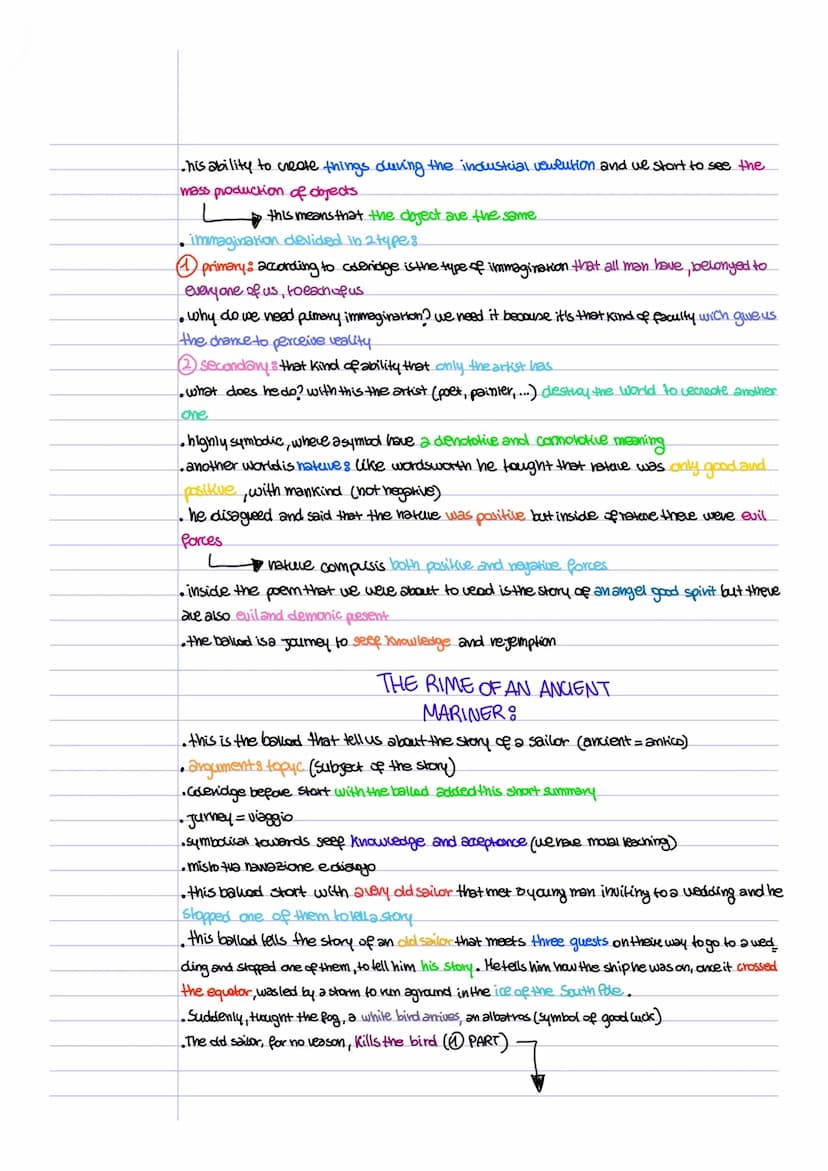 .his ability to create things during the industrial revolution and we start to see the
mass production of objects
this means that the object are the same
. immagination devided in 2 type:
① primary: according to coleridge is the type of immagination that all man have, belonged to
everyone of us, to each of us
. why do we need primary immagination? we need it because it's that kind of faculty wich give us
the chance to perceive reality
② secondary: that kind of ability that only the artist has
. what does he do? with this the artist (poet, painter, ...) destroy the world to recreate another
one
. highly symbolic, where a symbol have a denotative and connotative meaning
. another world is nature: like wordsworth he tought that nature was only good and
positive, with mankind (not negative)
. he disagreed and said that the nature was positive but inside of nature there were evil
forces
nature compusis both positive and negative forces
. inside the poem that we were about to read is the story of an angel good spirit but there
are also evil and demonic present
. the ballad is a journey to self knowledge and redemption
THE RIME OF AN ANCIENT
MARINER:
. this is the ballad that tell us about the story of a sailor (ancient = antico)
. argument: topyc (subject of the story)
. Coleridge before start with the ballad added this short summary
. jurney = viaggio
. symbolical towards self knowledge and acceptance (we have moral teaching)
. misto tra narrazione e dialogo
. this ballad start with a very old sailor that met 3 young man inviting to a wedding and he
stopped one of them to tell a story
. this ballad tells the story of an old sailor that meets three guests on their way to go to a wed
ding and stopped one of them, to tell him his story. He tells him how the ship he was on, once it crossed
the equator, was led by a storm to run aground in the ice of the South Pole.
. Suddenly, tought the fog, a white bird arrives, an albatros (symbol of good luck)
. The old sailor, for no reason, kills the bird (① PART)